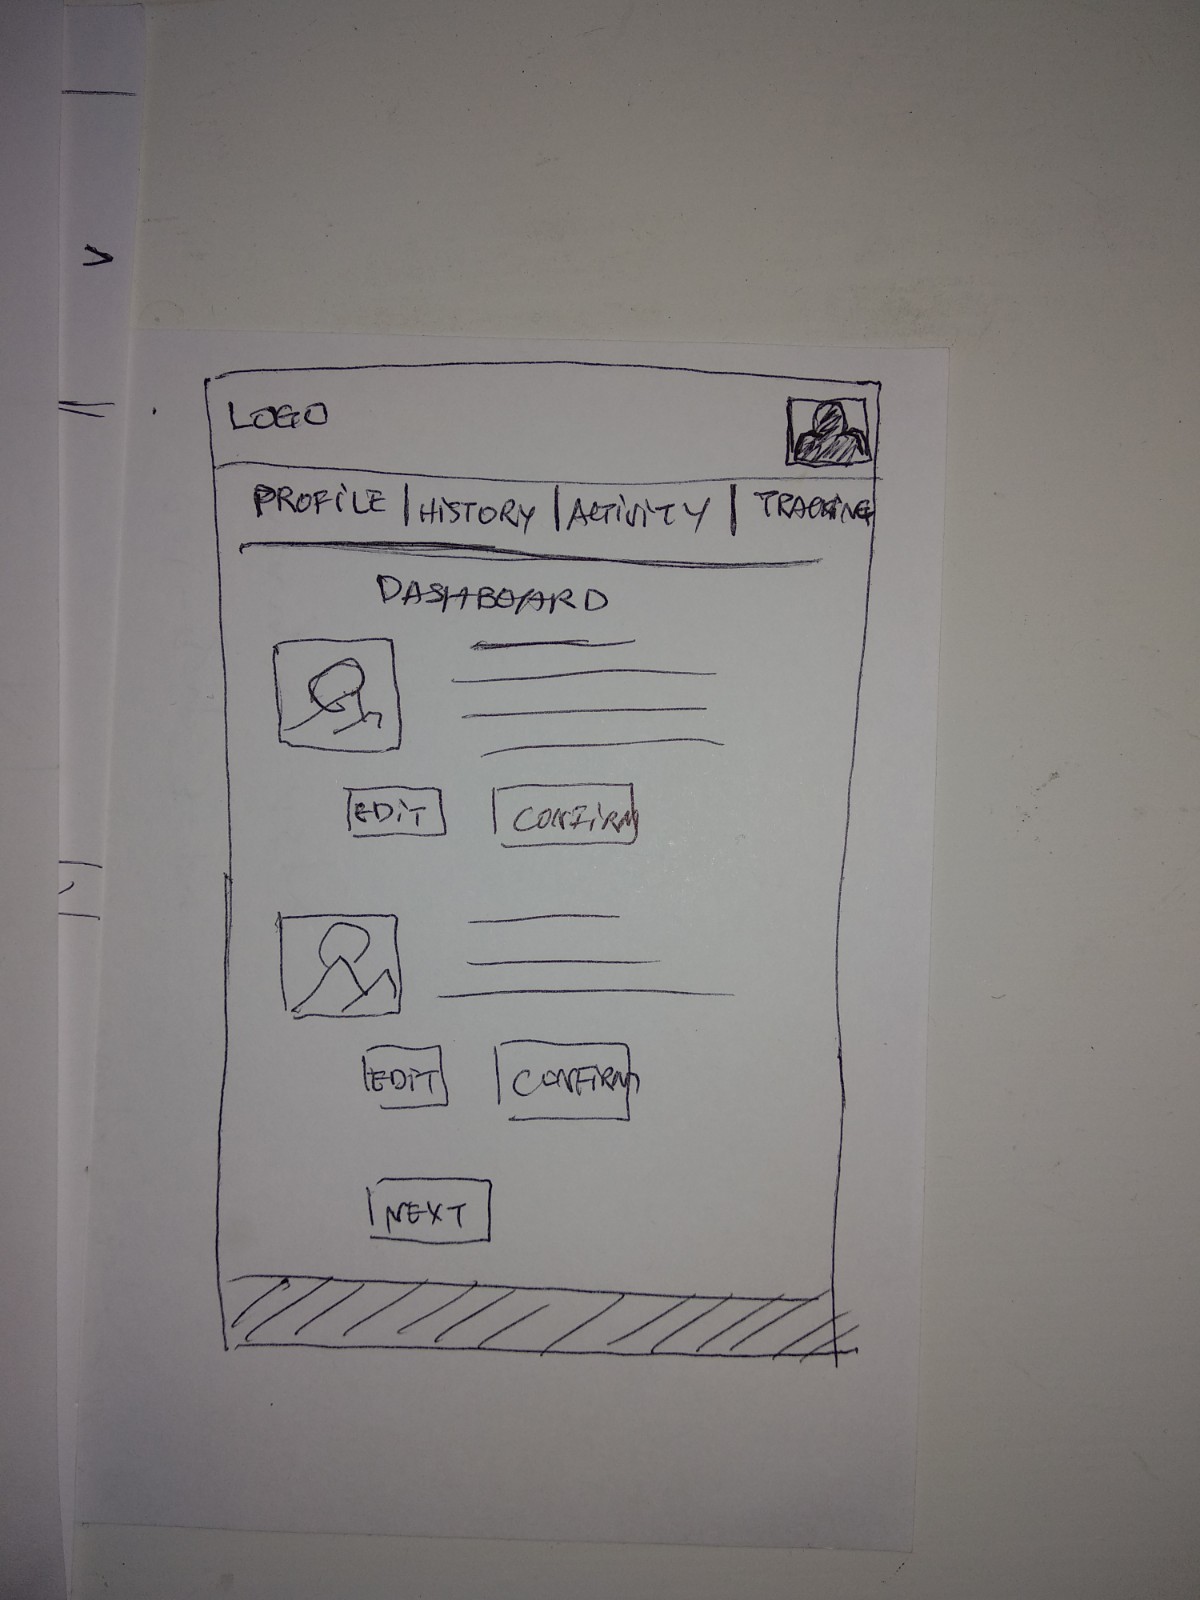 LOGO
PROFILE | HISTORY | ACTIVITY | TRACKING
DASHBOARD
EDIT CONFIRM
EDIT CONFIRM
NEXT